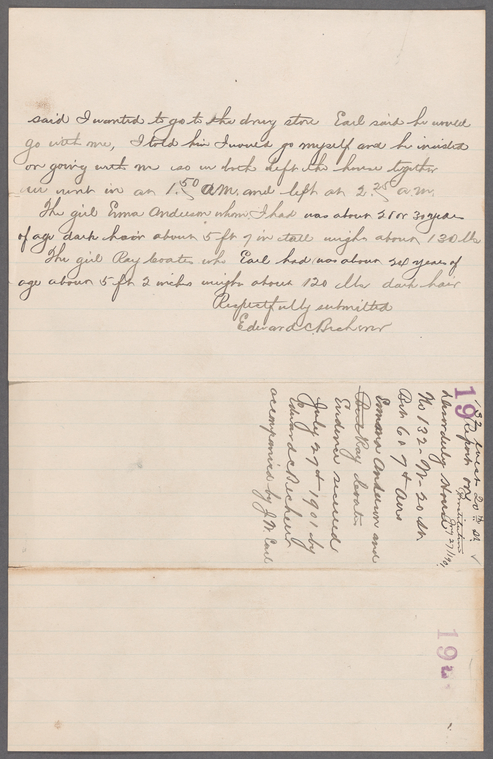 said I wanted to go to the drug store Earl said he would
go with me, I told him I would go myself and he insisted
on going with me so we both left the house together
we went in at 1.50 a.m. and left at 2.25 a.m.
The girl Emma Anderson whom I had was about 21 or 30 years
of age dark hair about 5 ft 7 in tall weighs about 130 lbs
The girl Ray Coates who Earl had was about 24 years of
age about 5 ft 2 inches weighs about 120 lbs dark hair
Respectfully submitted
Edward C Becherer
19
132 West 20th St
Report on
Prostitution
Disorderly House
July 27/1901
No 132 - W - 20 St.
Bet 6 & 7th Aves
Emma Anderson and
Ray Coates
Evidence secured
July 27th 1901 by
Edward C Becherer
accompanied by J. W. Earl
19